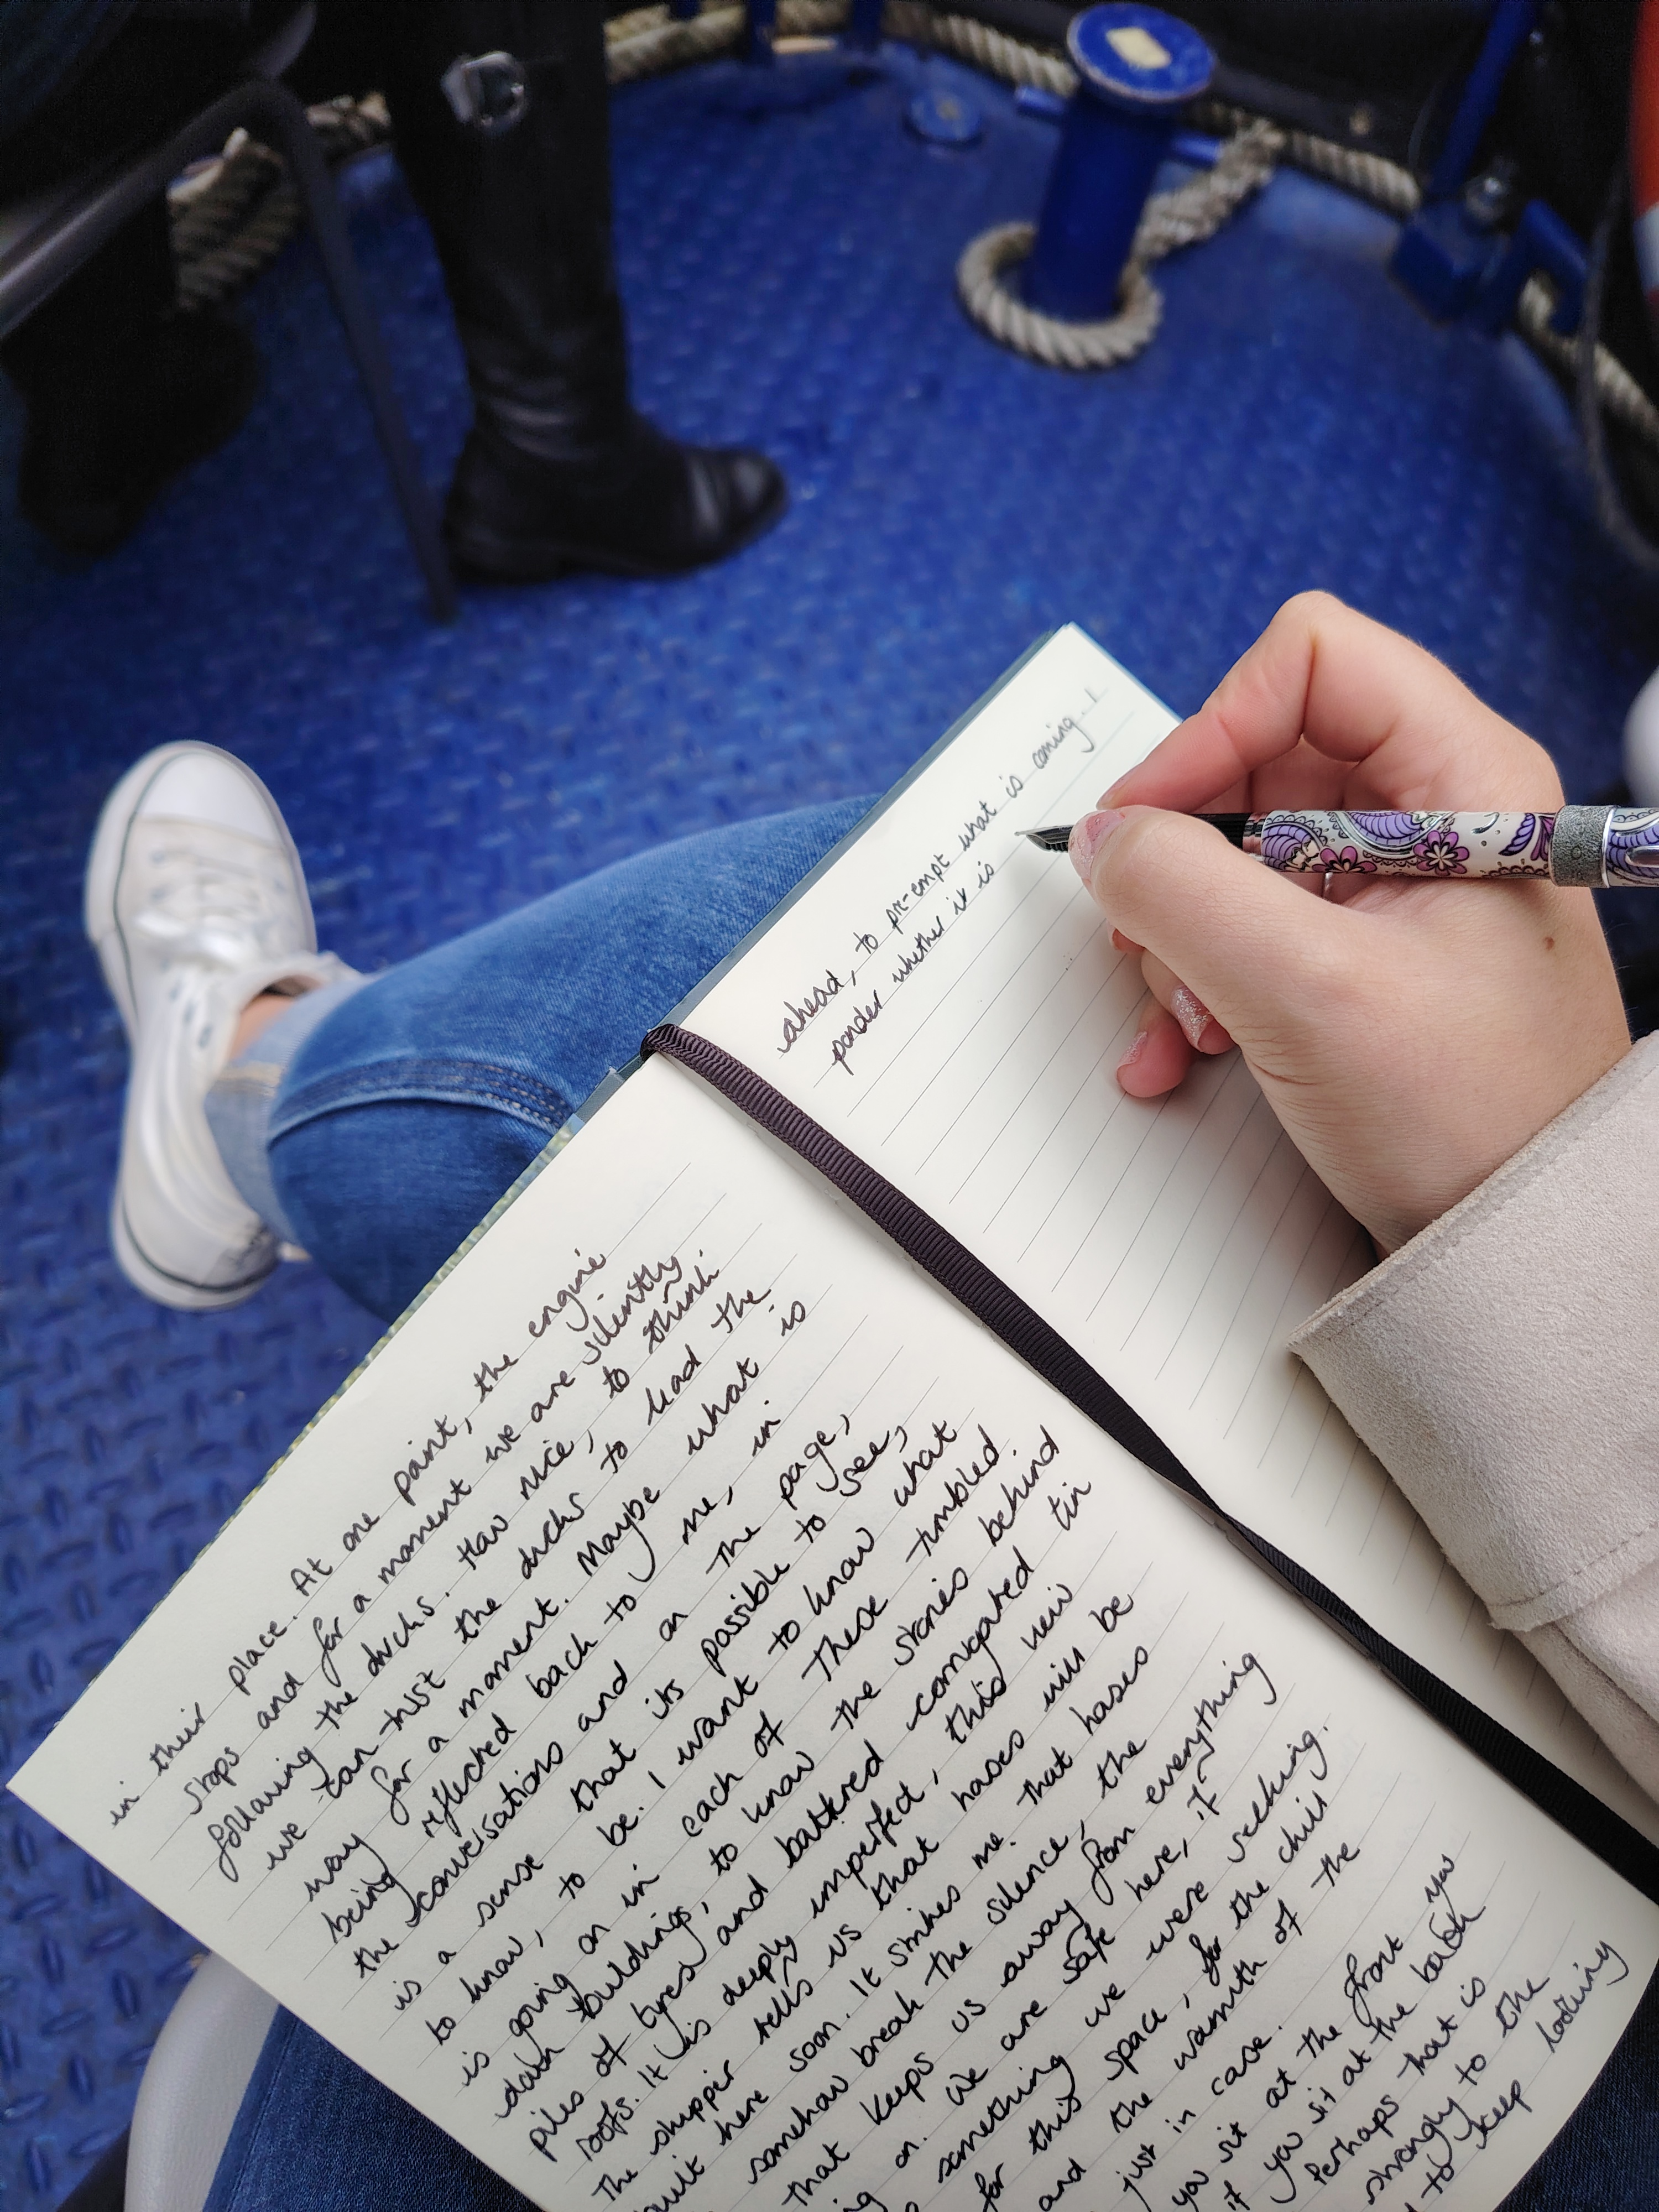 in their place. At one point, the engine
stops and for a moment we are silently
following the ducks. How nice, to think
we can trust the ducks to lead the
way for a moment. Maybe what is
being reflected back to me, in
the conversations and on the page,
is a sense that its possible to see,
to know, to be. I want to know what
is going on in each of these tumbled
down buildings, to know the stories behind
piles of tyres and battered corrugated tin
roofs. It is deeply imperfect, this new
The skipper tells us that hases will be
built here soon. It strikes me that hases
somehow break the silence, the
that keeps us away from everything
on. We are safe here, if
something we were seeking.
for this space, for the chill
and the warmth of the
just in case.
you sit at the front you
if you sit at the back
Perhaps that is
strongly to the
to keep looking
ahead, to pre-empt what is coming. I
ponder whether it is